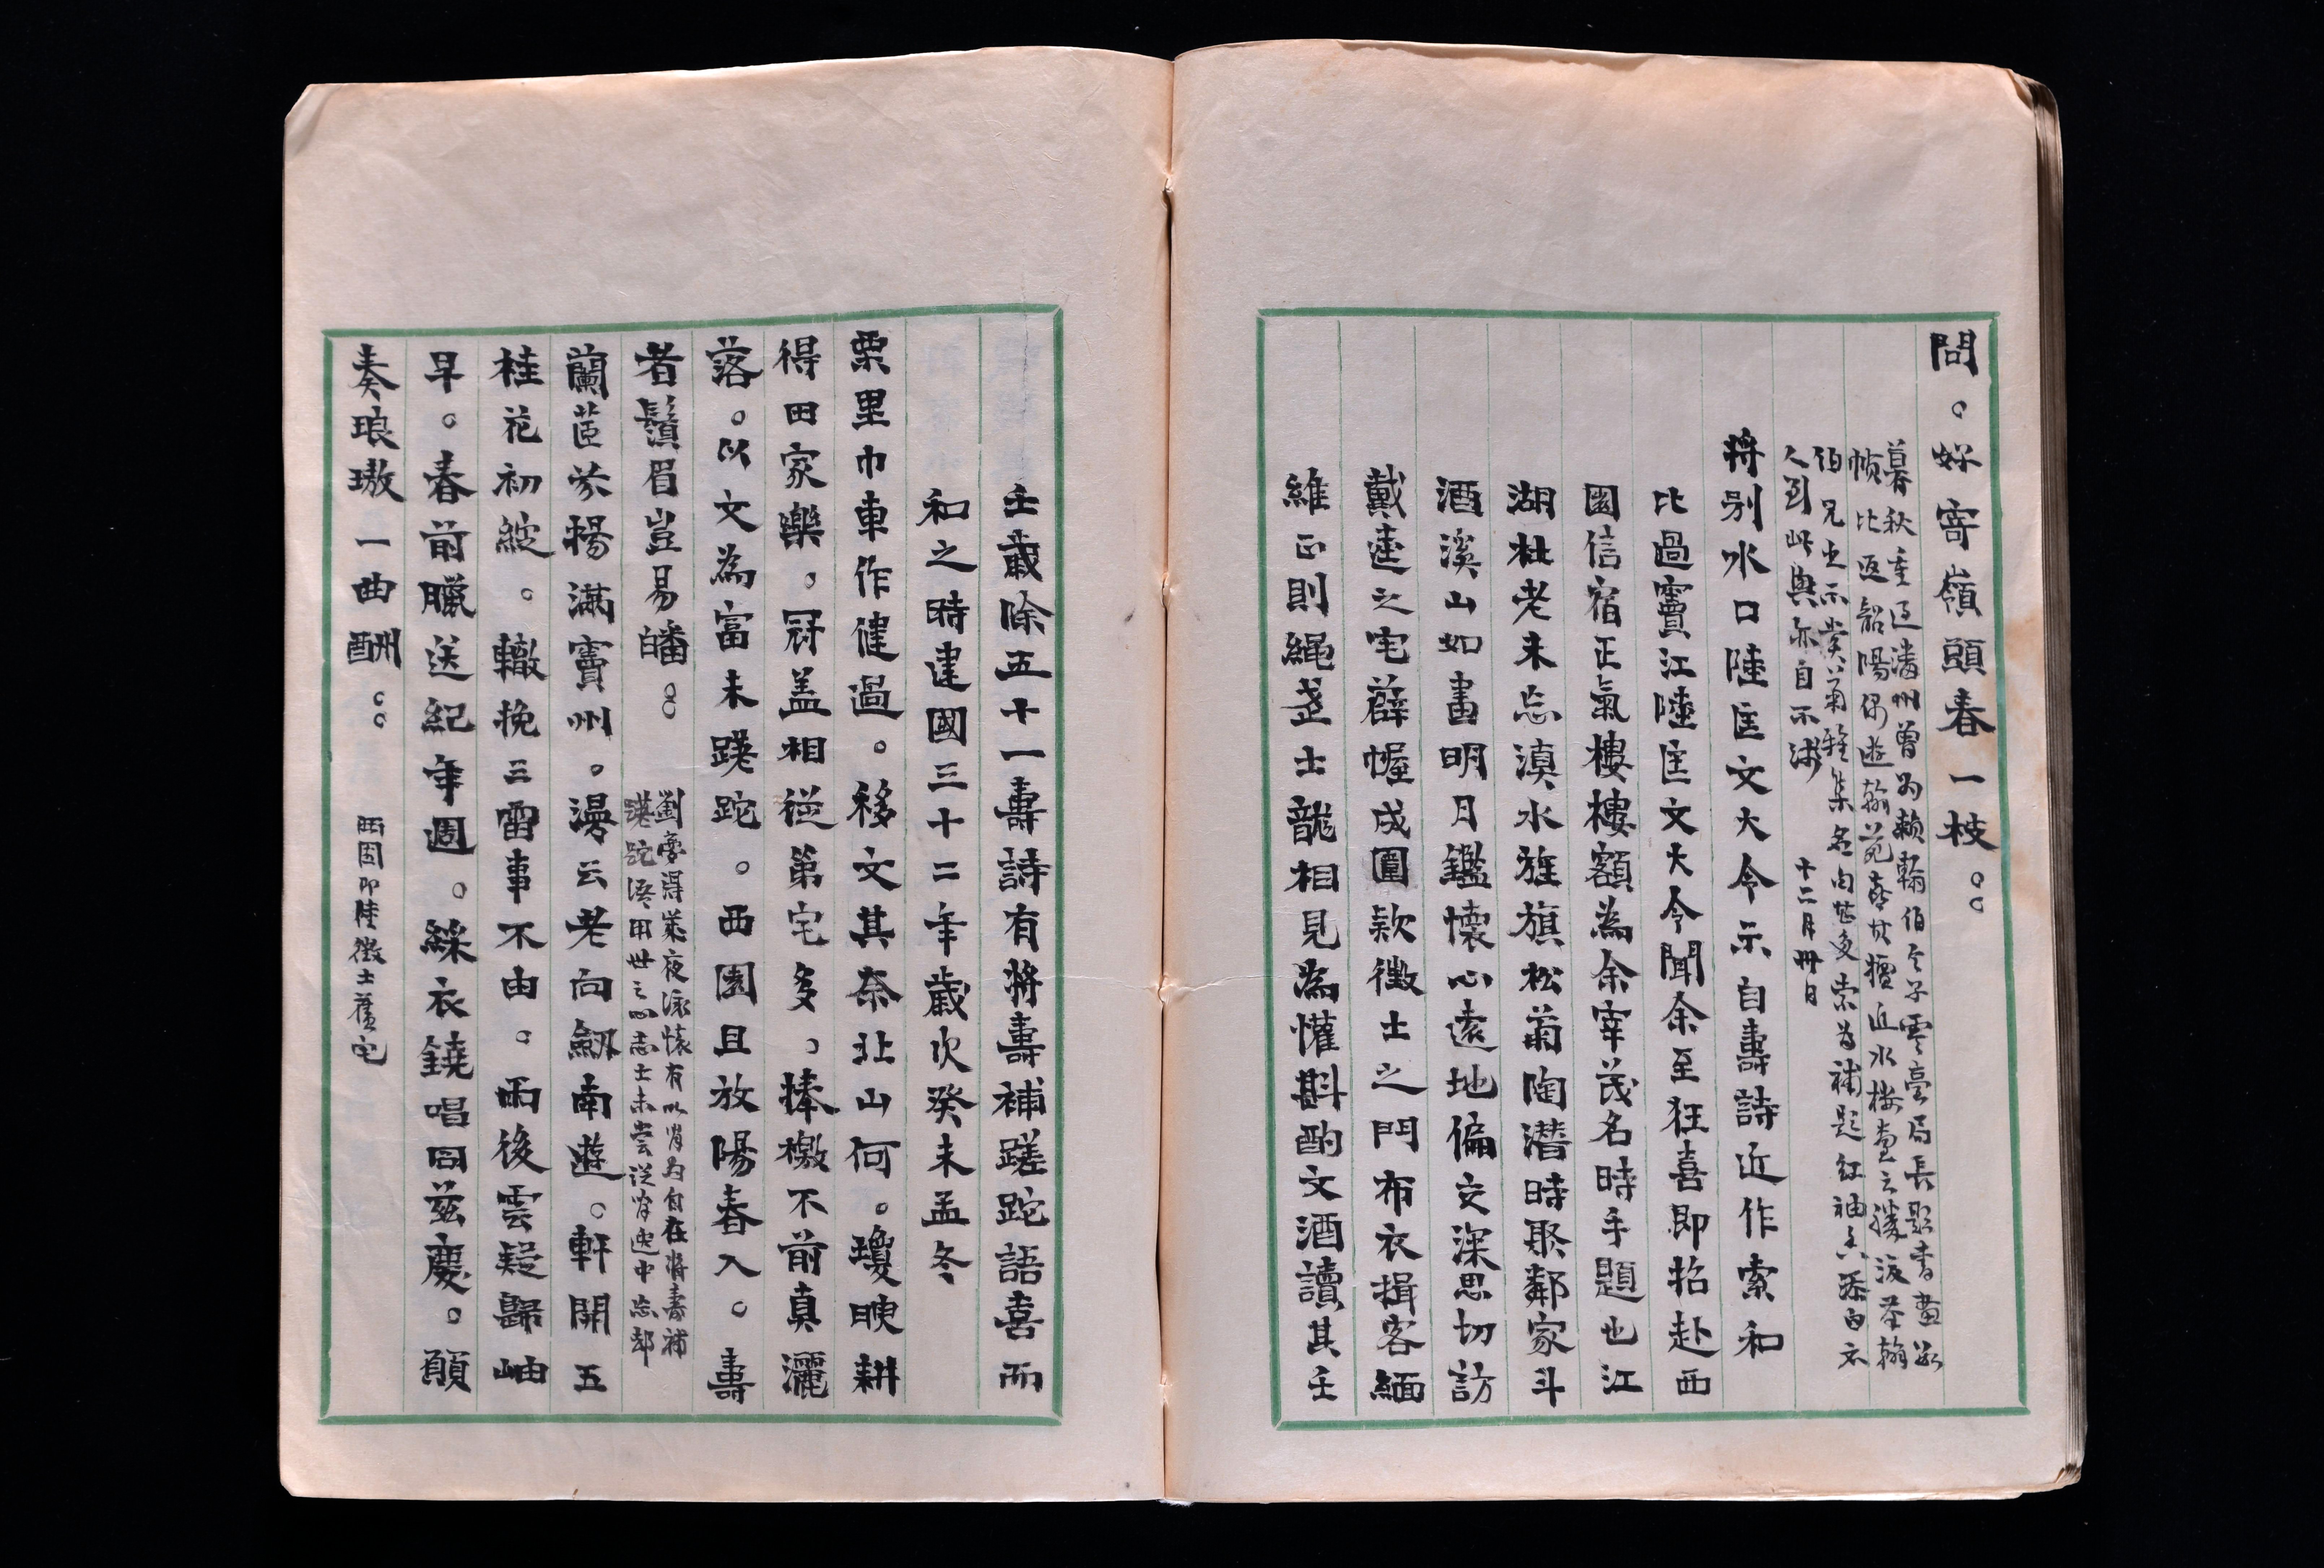 問。好寄嶺頭春一枝。。
暮秋重過潘州曾為賴翰伯令子雲亭局長題書畫數
幀比返韶陽偶遊翰苑
伯兄出示黃菊雅集名句甚多索為補題紅袖添白衣
人到此興亦自不淺 十二月卅日
將別水口陸匡文大令示自壽詩近作索和
比過竇江陸匡文大令聞余至狂喜即招赴西
園信宿正氣樓樓額為余宰茂名時手題也江
湖杜老未忘滇水旌旗松菊陶潛時聚鄰家斗
酒溪山如畫明月鑑懷心遠地偏交深思切訪
戴逵之宅薜幄成圍款徵士之門布衣揖客緬
維正則繩趨士龍相見為懽斟酌文酒讀其壬
壬歲除五十一壽詩有將壽補蹉跎語喜而
和之時建國三十二年歲次癸未孟冬
栗里巾車作健過。移文其奈北山何。瓊腴耕
得田家樂。冠蓋相從第宅多。捧檄不前真灑
落。以文為富未蹉跎。西園且放陽春入。壽
者鬚眉豈易皤。。
劉彥淂萊夜泳懷有以肖為自在將壽補
蹉跎語用世之心志士未嘗從肖逸中忘却
蘭茝芬揚滿竇州。漫云老向劒南遊。軒開五
桂花初綻。轍挽三雷事不由。雨後雲疑歸岫
早。春前臘送紀年週。綵衣鐃唱因茲慶。願
奏琅璈一曲酬。。
西園即陸徵士舊宅